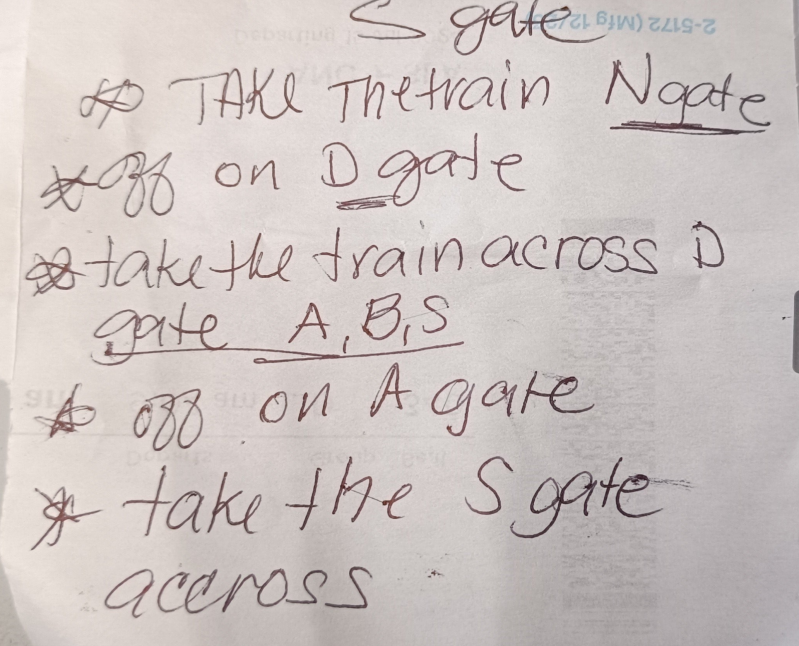 S gate
* TAKE The train N gate
* off on D gate
* take the train across D
gate A, B, S
* off on A gate
* take the S gate
accross